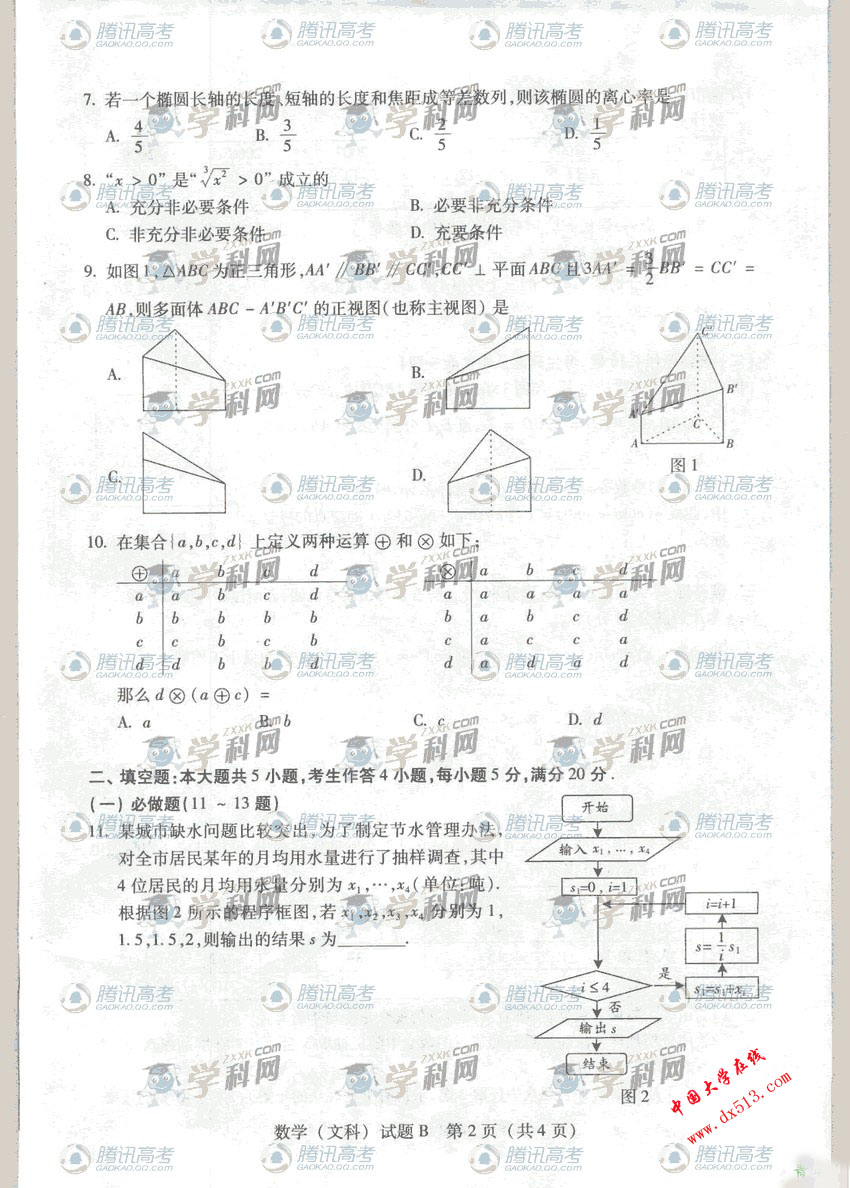 7. 若一个椭圆长轴的长度、短轴的长度和焦距成等差数列,则该椭圆的离心率是
A. 4/5 B. 3/5 C. 2/5 D. 1/5
8. “x > 0”是“∛x² > 0”成立的
A. 充分非必要条件 B. 必要非充分条件
C. 非充分非必要条件 D. 充要条件
9. 如图1,△ABC为正三角形,AA′ // BB′ // CC′,CC′ ⊥ 平面ABC且3AA′ = 3/2 BB′ = CC′ =
AB,则多面体 ABC - A′B′C′ 的正视图(也称主视图)是
A. B.
C′
B′
A′
C
A B
图1
C. D.
10. 在集合{a,b,c,d}上定义两种运算⊕和⊗如下:
⊕ a b c d ⊗ a b c d
a a b c d a a a a a
b b b b b b a b c d
c c b c b c a c c a
d d b b d d a d a d
那么 d⊗(a⊕c) =
A. a B. b C. c D. d
二、填空题:本大题共5小题,考生作答4小题,每小题5分,满分20分.
(一)必做题(11 ~ 13题)
11. 某城市缺水问题比较突出,为了制定节水管理办法,
对全市居民某年的月均用水量进行了抽样调查,其中
4位居民的月均用水量分别为 x₁,…,x₄(单位:吨).
根据图2所示的程序框图,若 x₁,x₂,x₃,x₄ 分别为1,
1.5,1.5,2,则输出的结果 s 为________.
开始
输入 x₁,…,x₄
s₁=0,i=1
i=i+1
s=1/i s₁
是
i≤4
s₁=s₁+xᵢ
否
输出 s
结束
图2
数学(文科)试题B 第2页(共4页)
中国大学在线
www.dx513.com
腾讯高考
GAOKAO.QQ.COM
学科网
ZXXK.COM